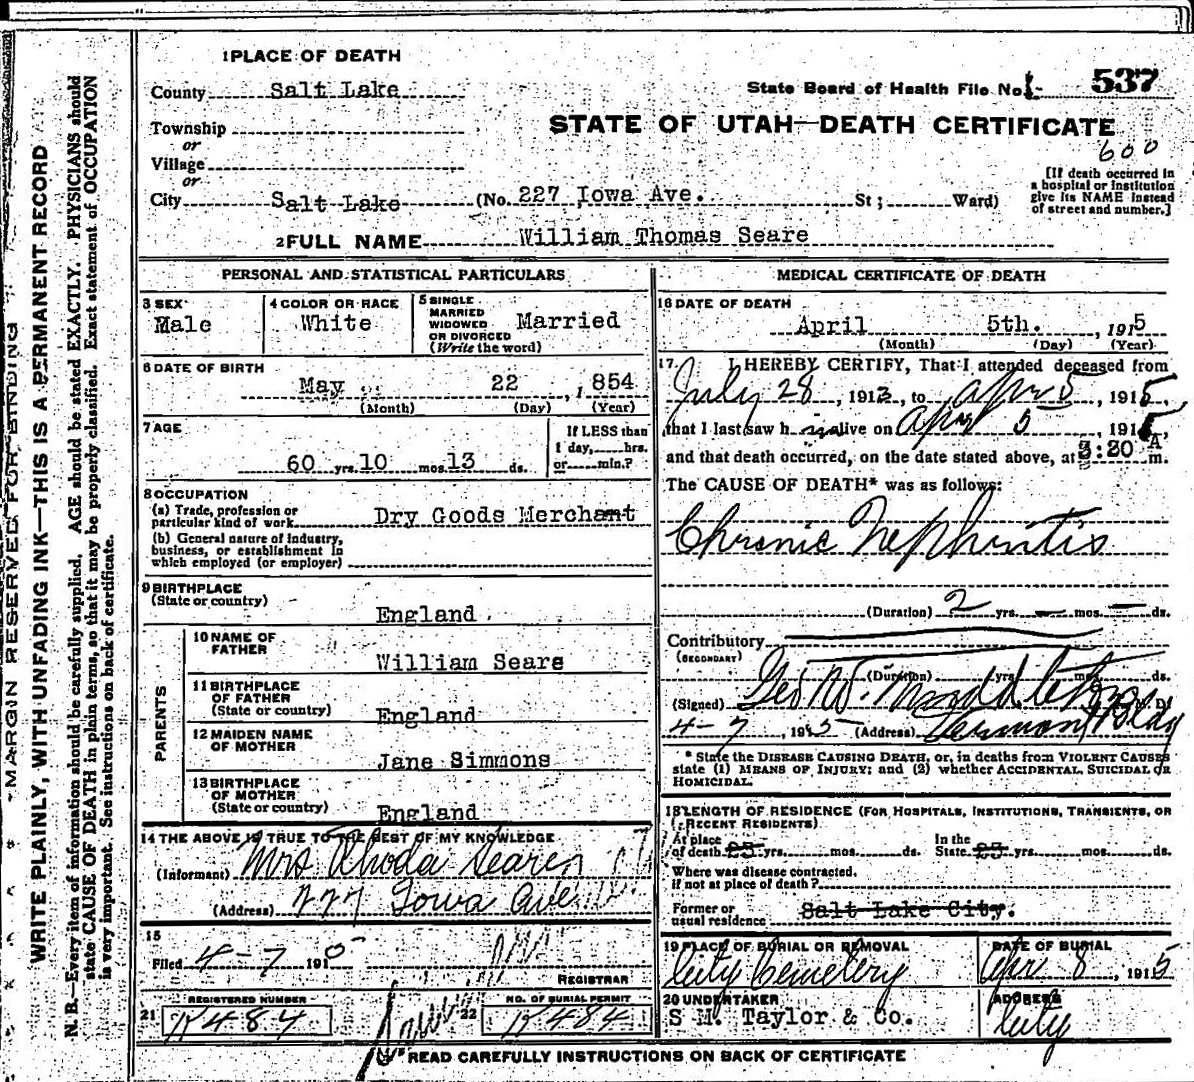 1 PLACE OF DEATH
County Salt Lake
State Board of Health File No. 537
Township
or
STATE OF UTAH—DEATH CERTIFICATE
600
Village
or
[If death occurred in
a hospital or institution
give its NAME instead
of street and number.]
City Salt Lake (No. 227 Iowa Ave. St; Ward)
2 FULL NAME William Thomas Seare
PERSONAL AND STATISTICAL PARTICULARS
3 SEX
Male
4 COLOR OR RACE
White
5 SINGLE
MARRIED
WIDOWED
OR DIVORCED
(Write the word)
Married
6 DATE OF BIRTH
May 22, 1854
(Month) (Day) (Year)
7 AGE
60 yrs. 10 mos. 13 ds.
If LESS than
1 day, hrs.
or min.?
8 OCCUPATION
(a) Trade, profession or
particular kind of work Dry Goods Merchant
(b) General nature of industry,
business, or establishment in
which employed (or employer)
9 BIRTHPLACE
(State or country)
England
PARENTS
10 NAME OF
FATHER
William Seare
11 BIRTHPLACE
OF FATHER
(State or country)
England
12 MAIDEN NAME
OF MOTHER
Jane Simmons
13 BIRTHPLACE
OF MOTHER
(State or country)
England
14 THE ABOVE IS TRUE TO THE BEST OF MY KNOWLEDGE
(Informant) Mrs Rhoda Seare
(Address) 227 Iowa Ave
15
Filed 4-7 191
REGISTRAR
21 REGISTERED NUMBER
K484
22 NO. OF BURIAL PERMIT
K484
MEDICAL CERTIFICATE OF DEATH
16 DATE OF DEATH
April 5th. , 1915
(Month) (Day) (Year)
17 I HEREBY CERTIFY, That I attended deceased from
July 28, 1913, to Apr 5, 1915,
that I last saw h im alive on Apr 5, 1915,
and that death occurred, on the date stated above, at 3:20 A m.
The CAUSE OF DEATH* was as follows:
Chronic Nephritis
(Duration) 2 yrs. — mos. — ds.
Contributory
(SECONDARY)
(Duration) yrs. mos. ds.
(Signed) Geo W. Middleton M. D.
4-7, 1915 (Address) Vermont Bldg
* State the DISEASE CAUSING DEATH, or, in deaths from VIOLENT CAUSES
state (1) MEANS OF INJURY; and (2) whether ACCIDENTAL, SUICIDAL or
HOMICIDAL.
18 LENGTH OF RESIDENCE (FOR HOSPITALS, INSTITUTIONS, TRANSIENTS, OR
RECENT RESIDENTS)
At place
of death 25 yrs. mos. ds.
In the
State 25 yrs. mos. ds.
Where was disease contracted,
if not at place of death?
Former or
usual residence Salt Lake City.
19 PLACE OF BURIAL OR REMOVAL
City Cemetery
DATE OF BURIAL
Apr 8, 1915
20 UNDERTAKER
S M. Taylor & Co.
ADDRESS
City
*READ CAREFULLY INSTRUCTIONS ON BACK OF CERTIFICATE
MARGIN RESERVED FOR BINDING
WRITE PLAINLY, WITH UNFADING INK—THIS IS A PERMANENT RECORD
N. B.—Every item of information should be carefully supplied. AGE should be stated EXACTLY. PHYSICIANS should
state CAUSE OF DEATH in plain terms, so that it may be properly classified. Exact statement of OCCUPATION
is very important. See instructions on back of certificate.